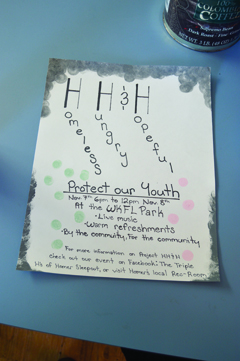 100% COLOMBIAN
COFFEE
NET WT
H H & H
Homeless
Hungry
Hopeful
Protect our Youth
Nov 7th 6pm to 12pm Nov 8th
At the WKFL Park
·Live music
·Warm refreshments
·By the community, For the community
For more information on Project HH&H
check out our event on Facebook: The Triple
H's of Homer Sleepout, or visit Homer's local Rec-Room